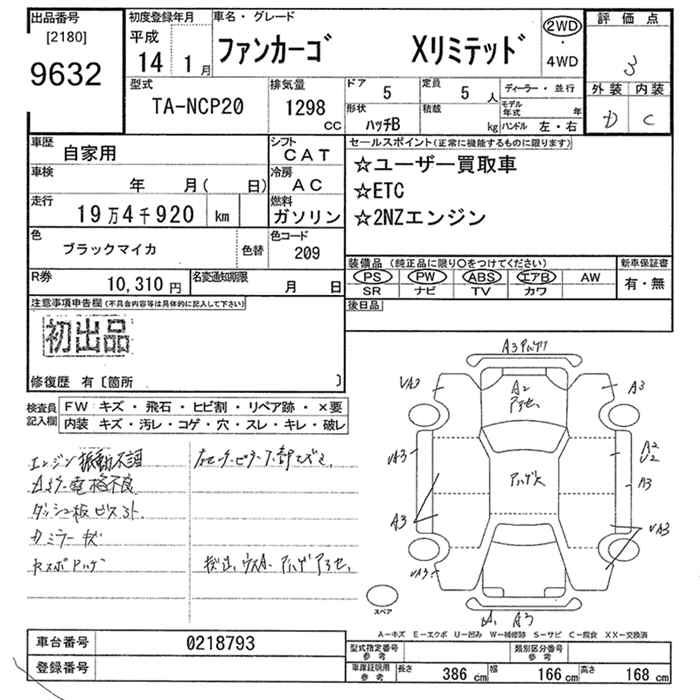 出品番号
[2180]
9632
初度登録年月
平成
14 1月
車名・グレード
ファンカーゴ Xリミテッド
2WD
・
4WD
評価点
3
外装 内装
D C
型式
TA-NCP20
排気量
1298
CC
ドア
5
定員
5 人
形状
ハッチB
積載
kg
ディーラー・並行
モデル年式 年
ハンドル 左・右
車歴
自家用
シフト
CAT
車検
年 月( 日)
冷房
AC
走行
19万4千920 km
燃料
ガソリン
色
ブラックマイカ
色替
色コード
209
R券
10,310円
名変通知期限
月 日
セールスポイント(正常に機能するものに限ります)
☆ユーザー買取車
☆ETC
☆2NZエンジン
装備品 (純正品に限り○をつけてください)
PS PW ABS エアB AW
SR ナビ TV カワ
新車保証書
有・無
後日品
注意事項申告欄(不具合内容等は具体的に記入して下さい)
初出品
修復歴 有〔箇所 〕
検査員
記入欄
FW: キズ・飛石・ヒビ割・リペア跡・×要
内装 キズ・汚レ・コゲ・穴・スレ・キレ・破レ
エンジン振動不調
ダッシュ板ビス
カミラーキズ
A3
A2
VA3
A3
VA3
A2
A3
A3
VA3
VA3
A3
スペア
A-キズ E-エクボ U-凹み W-補修跡 S-サビ C-腐食 XX-交換済
車台番号
0218793
登録番号
型式指定番号
参考
類別区分番号
参考
車庫証明用
参考
長さ 386 cm 幅 166 cm 高さ 168 cm